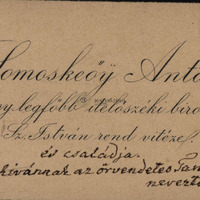 Somoskeöÿ Anta
y legfőbb itélőszéki biró
Sz. István rend vitéze.
és családja.
kivánnak az örvendetes